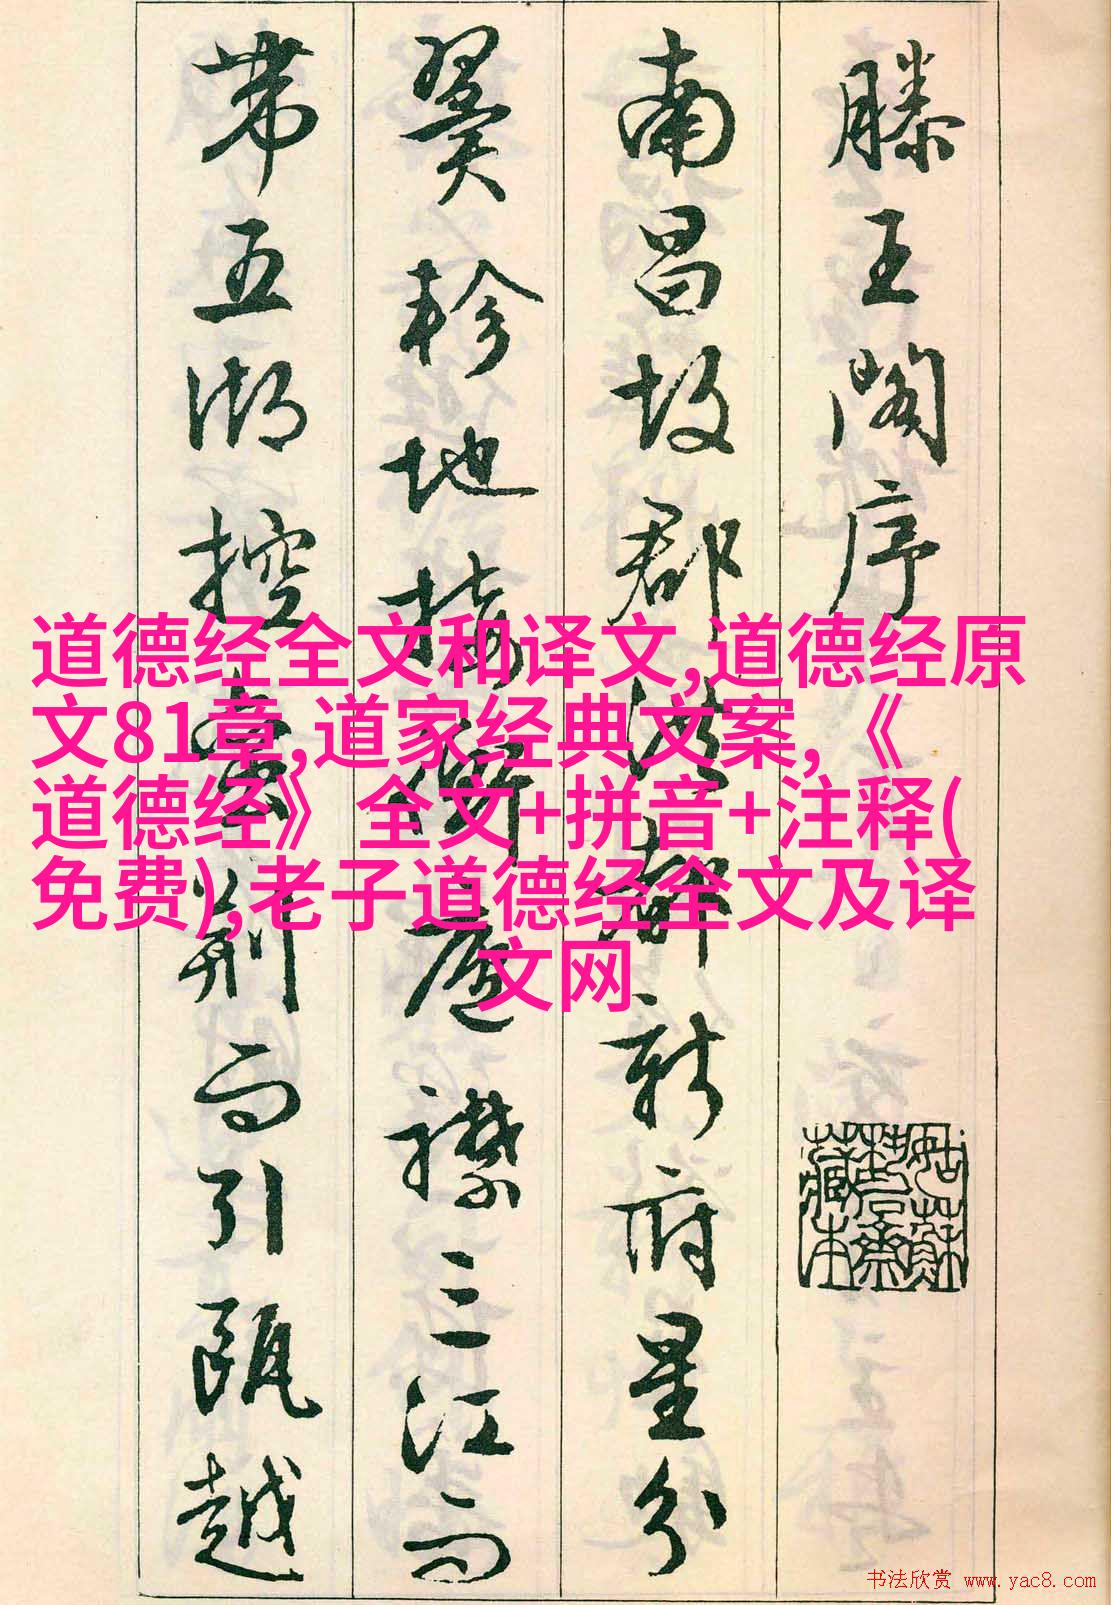 滕王阁序
南昌故郡洪都新府星分
翼轸地接衡庐襟三江而
带五湖控蛮荆而引瓯越
道德经全文和译文,道德经原
文81章,道家经典文案,《
道德经》全文+拼音+注释(
免费),老子道德经全文及译
文网
姑蘇
藏本
书法欣赏 www.yac8.com